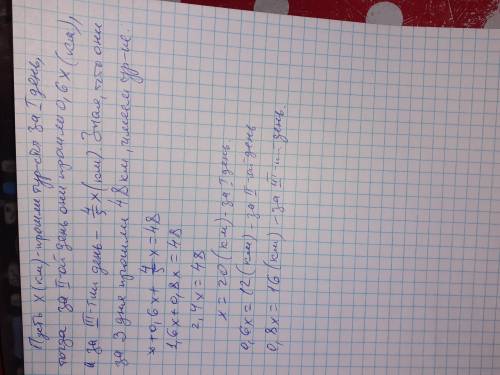 Пусть x(км)-прошли тур-сты за I день,
тогда за II-ой день они прошли 0,6x(км),
а за III-тий день- 4/5x(км). Зная, что они
за 3 дня прошли 48 км, имеем ур-ие:
x+0,6x+4/5x=48
1,6x+0,8x=48
2,4x=48
x=20(км)-за I день
0,6x=12(км)-за II-ой день
0,8x=16(км)-за III-ий день.